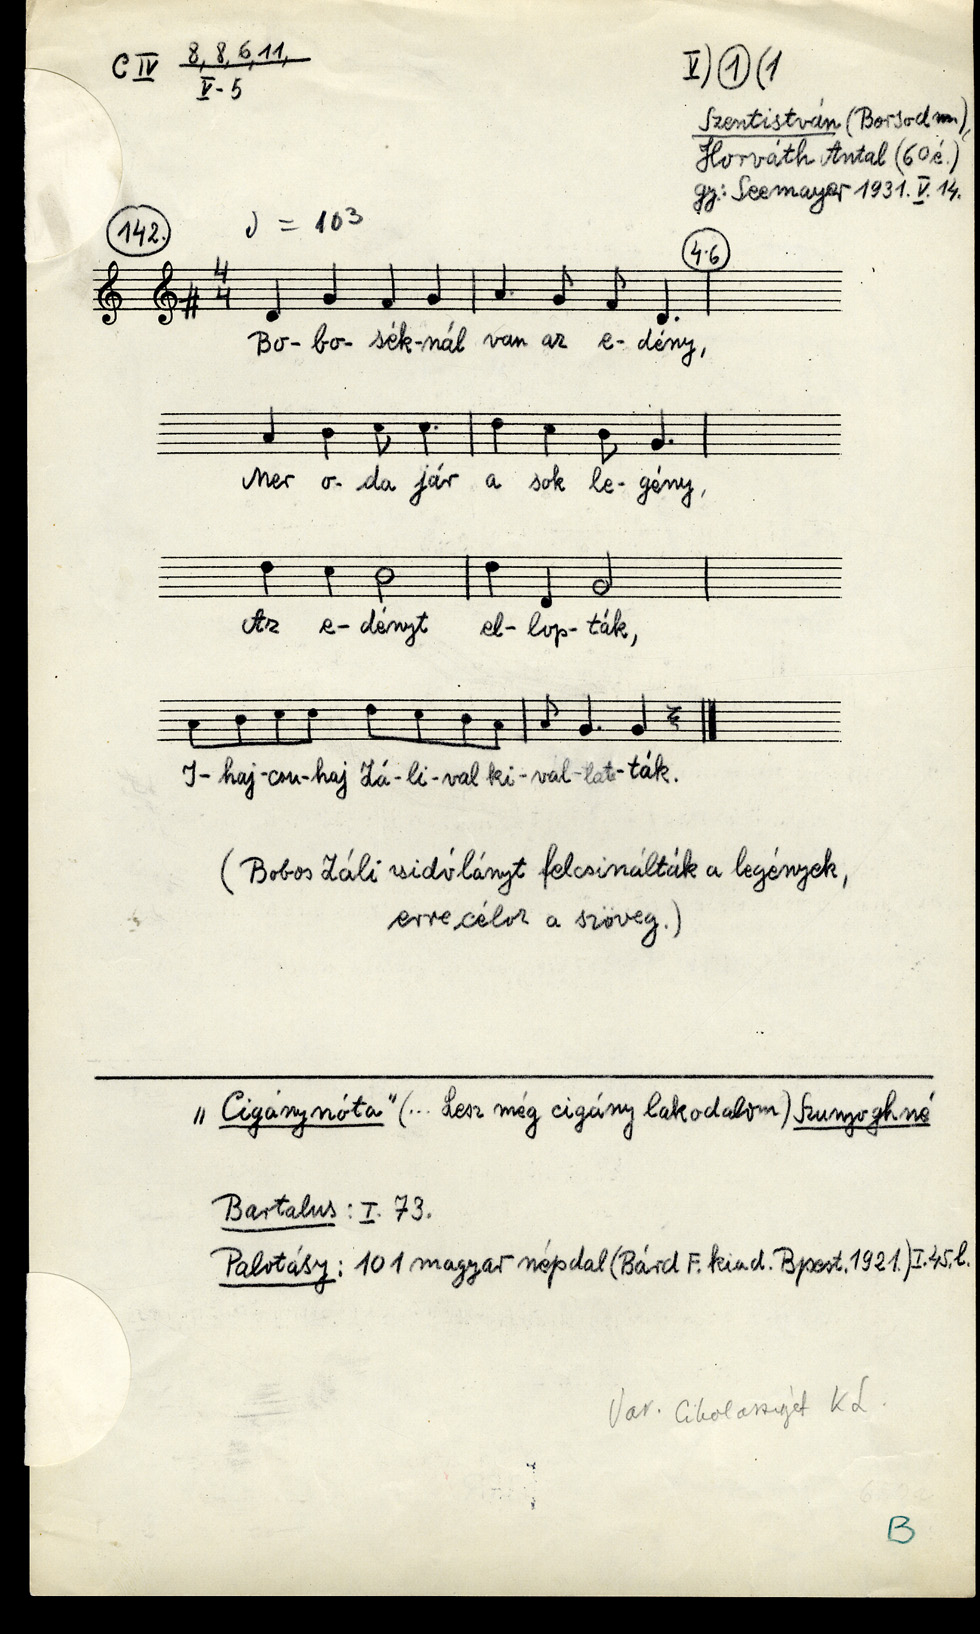 C IV 8, 8, 6, 11,
V - 5
V) 1 (1
Szentistván (Borsod m.),
Horváth Antal (60 é.)
gy: Seemayer 1931. V. 14.
142.
♩ = 103
4·6
4
4
Bo- bo- sék-nál van az e- dény,
Mer o- da jár a sok le- gény,
Az e- dényt el- lop- ták,
I- haj-csu-haj Záli-val ki-val-lat-ták.
(Bobos Záli zsidólányt felcsinálták a legények,
erre céloz a szöveg.)
„Cigánynóta" (... Lesz még cigány lakodalom) Szunyoghné
Bartalus: I. 73.
Palotásy: 101 magyar népdal (Bárd F. kiad. Bpest. 1921.) I. 45. l.
Var. KL.
B